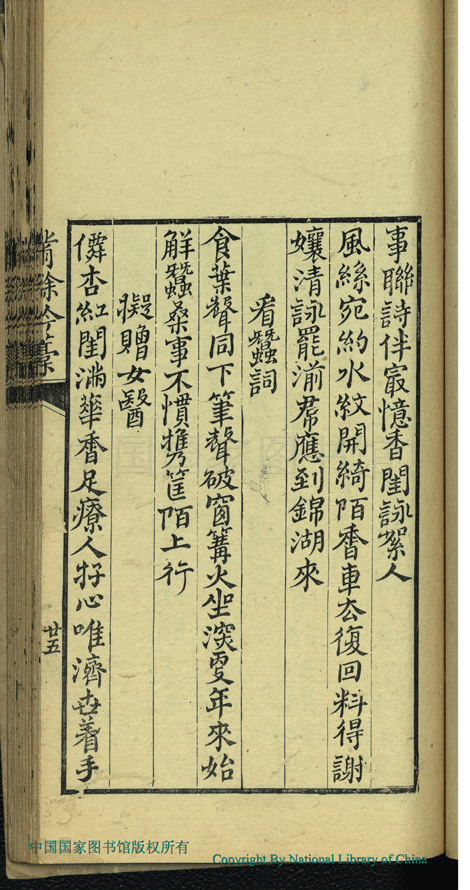 事聯詩伴㝡憶香閨詠絮人
風絲宛約水紋開綺陌香車去復回料得謝
孃清詠罷湔帬應到錦湖來
看蠶詞
食葉聲同下筆聲破窗篝火坐深更年來始
解蠶桑事不慣携筐陌上行
擬贈女醫
僲杏紅閨滿華香足療人好心唯濟世着手
廿五
中国国家图书馆版权所有
Copyright By National Library of China